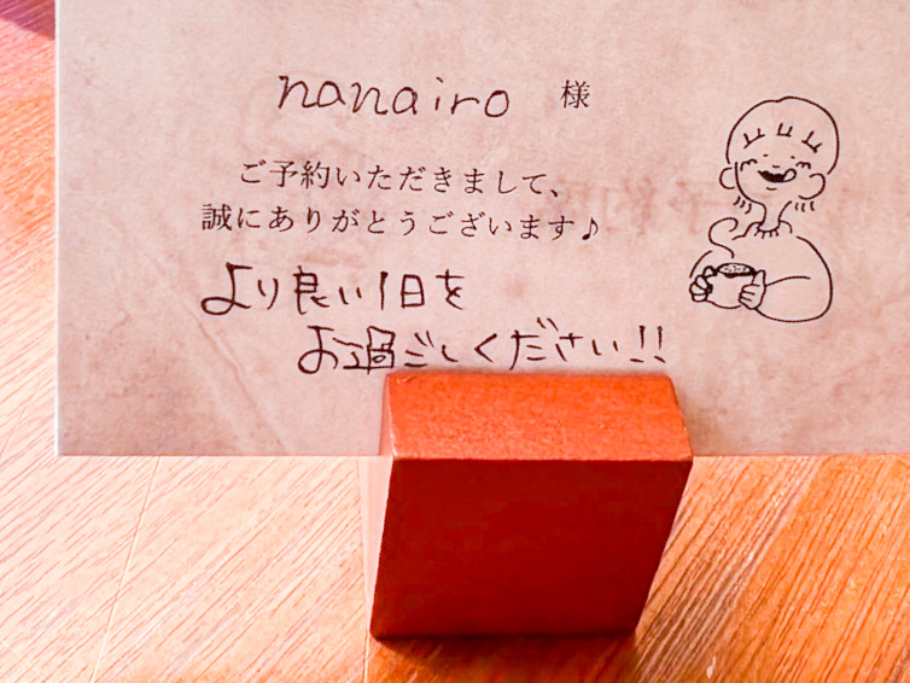 nanairo 様
ご予約いただきまして、
誠にありがとうございます♪
より良い1日を
お過ごしください!!